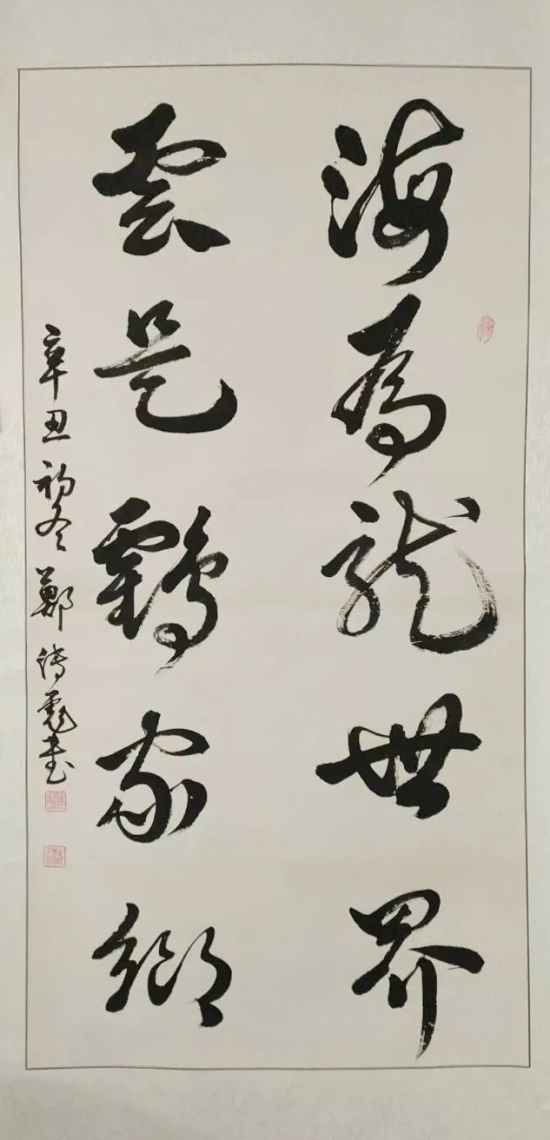 海為龍世界
雲是鶴家鄉
辛丑初冬鄭傳彪書